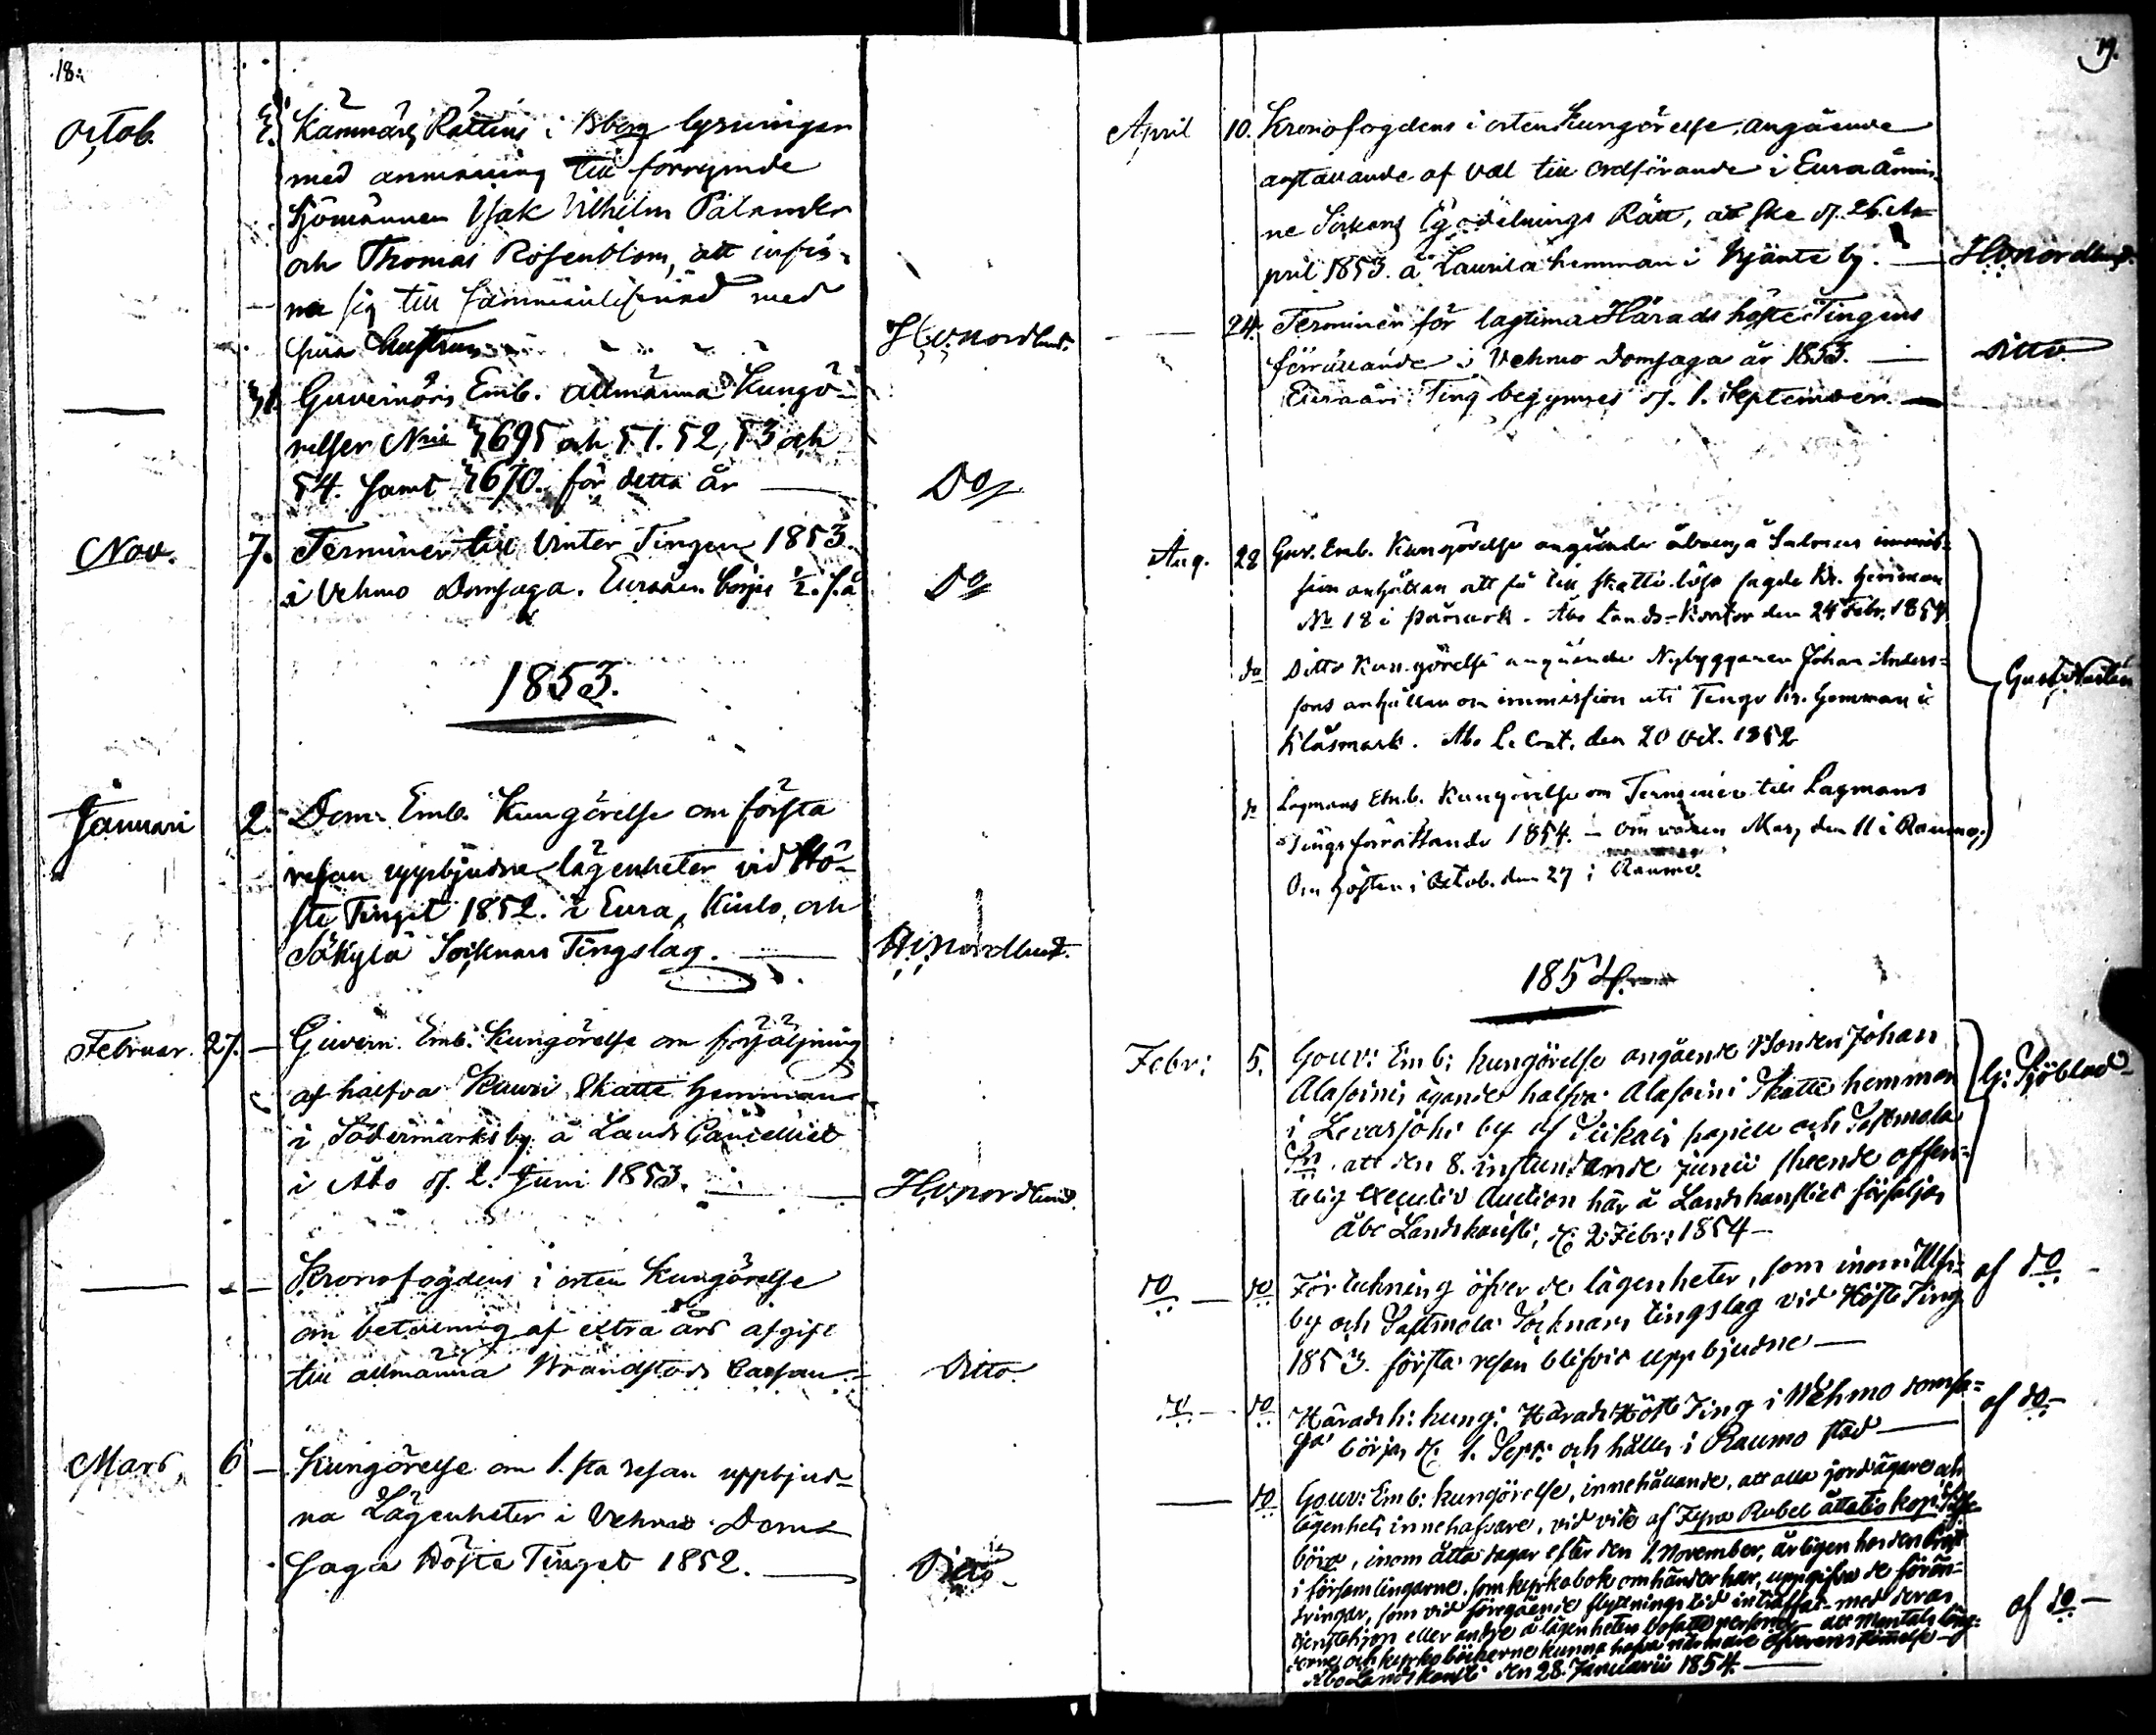 18.
Octob. 3. Kämnärs Rättens i Bberg lysningar
med anmaning till förrymde
Sjömännen Isak Wilhelm Palander
och Thomas Rosenblom, att infin-
na sig till sammanlefnad med
sina hustrur H. W. Nordlund.
— 31. Guvernörs Emb. allmänna Kungö-
relser N:ris och 51. 52, 53 och
54. samt för detta år — Do
Nov. 7. Terminer till Vinter Tingen 1853.
i Vehmo Domsaga. Euraåm. börjas ½. f. å Do
1853.
Januari 2. Dom. Emb. Kungörelse om första
resan uppbjudna lägenheter vid Hö-
ste Tinget 1852. i Eura, Kiulo, och
Säkylä Socknars Tingslag. — H. W. Nordlund.
Februar. 27. — Guvern. Emb. Kungörelse om försäljning
af halfva Kauri Skatte hemman
i Södermarks by å Lands Cancelliet
i Åbo d. 2. Juni 1853. — H. W. Nordlund.
— — Kronofogdens i orten Kungörelse
om betalning af extra års afgift
till allmänna Brandstods Cassan. — Ditto.
Mars 6 — Kungörelse om 1.sta resan uppbjud-
na Lägenheter i Vehmo Dom-
saga Höste Tinget 1852. — Ditto
19.
April 10. Kronofogdens i orten Kungörelse, angående
anställande af val till ordförande i Euraåmin-
ne Sockens Egodelnings Rätt, att ske d. 26. A-
pril 1853. å Laurila hemman i by. — H. W. Nordlund.
— 24. Terminen för lagtima Härads höste Tingens
förrättande i Vehmo Domsaga år 1853. — Ditto
Euraåm. Ting begynnes d. 1. September. —
Aug. 28 Guv. Emb. Kungörelse angående åboens å Salmus immis-
sion anhållan att få till skatte lösa sagde Kr. hemman
No 18 i Påmark. Åbo Lands-Kontor den 24 Febr. 1854
do Ditto Kungörelse angående Nybyggaren Johan Anders-
sons anhållan om immission uti Tengo Kr. hemman i
Klåsmark. Åbo L. Cont. den 20 Oct. 1852
do Lagmans Emb. Kungörelse om Terminer till Lagmans
Tings förrättande 1854. — Om våren Mars den 11 i Raumo.
Om hösten i Octob. den 27 i Raumo.
1854.
Febr: 5. Gouv: Emb: kungörelse angående Bonden Johan
Alasoinis ägande halfva Alasoini Skatte hemman G: Sjöblad
i Levasjoki by af kapell och Sastmola
Sn. att den 8. instundande Junii skeende offen-
telig executiv Auction här å Landskansliet försäljas
Åbo Landskansli, d: 2 Febr: 1854 —
do — do Förteckning öfver de lägenheter, som inom Ulfs- af do —
by och Sastmola Socknars tingslag vid Höste Ting
1853. första resan blifvit uppbjudne —
do — do Häradsh: kung: Härads Höste Ting i Wehmo domsa- af do —
ga börjas d: 1. Sept: och hålles i Raumo stad —
— do Gouv: Emb: kungörelse, innehållande, att alla jordägare och
lägenhets innehafvare, vid vite af Fyra Rubel åttatio kop. Silfver
böra, inom åtta dagar efter den 1. November, årligen hos den Präst
i församlingarne, som kyrkobok omhänder har, uppgifva de förän-
dringar, som vid föregående flyttningstid inträffat med deras
tjenstehjon eller andre å lägenheten bosatte personer — att Mantals läng-
derne och kyrkoböckerne kunna hafva närmare öfverensstämmelse — af do —
Åbo Landskansli den 28. Januarii 1854. —